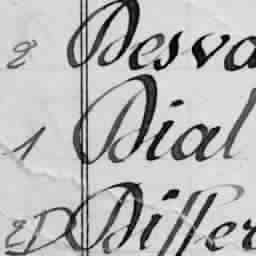 2 Desva
1 Dial
2D Differ